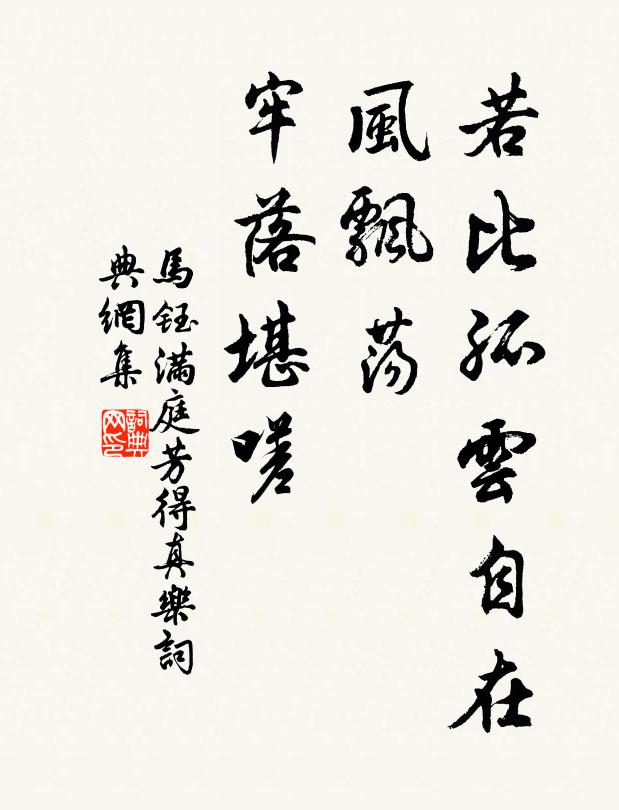 若比孤雲自在
風飄蕩
牢落堪嗟
馬鈺滿庭芳得真樂詞
典網集
詞典網印